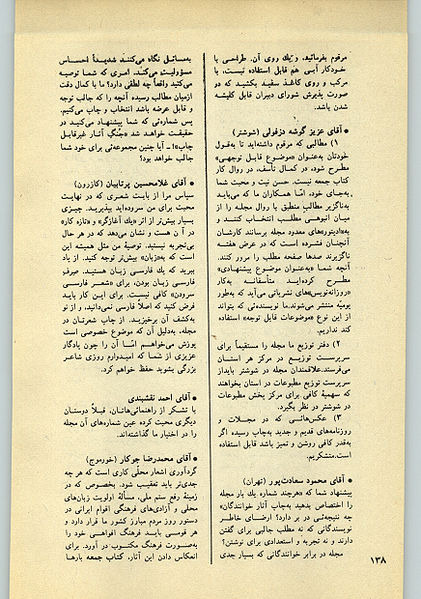 مرقوم بفرمائید. و نیك روی آن. طراحی با
خودکار آبی هم قابل استفاده نیست، با
مرکب و روی کاغذ سفید بکشید که در
صورت پذیرش شورای دبیران قابل کلیشه
شدن باشد.
● آقای عزیز گوشه دزفولی (شوشتر)
۱) مطالبی که مرقوم داشته‌اید تا به‌قول
خودتان به‌عنوان «موضوع قابل توجهی»
مطرح شود، در کمال تأسف، در روال کار
کتاب جمعه نیست. حسن نیت و محبت شما
به‌جای خود، اما همکاران ما که می‌باید
به‌ناگزیر مطالب منطبق با روال مجله را از
میان انبوهی مطلب انتخاب کنند و
به «ادیتور»‌های معدود مجله برسانند کارشان
آنچنان فشرده است که در عرض هفته
ناگزیرند صدها صفحه مطلب را مرور کنند.
آنچه شما «به‌عنوان موضوع پیشنهادی»
مطرح کرده‌اید متأسفانه به‌کار
«روزنامه‌نویس»‌های نشریاتی می‌آید که به‌طور
یومیه منتشر می‌شوند. ما نویسنده‌ئی که بتواند
از این نوع «موضوعات قابل توجه» استفاده
کند نداریم.
۲) دفتر توزیع ما مجله را مستقیماً برای
سرپرست توزیع در مرکز هر استان
می‌فرستد. علاقمندان مجله در شوشتر باید از
سرپرست توزیع مطبوعات در استان بخواهند
که سهمیهٔ کافی برای مرکز پخش مطبوعات
در شوشتر در نظر بگیرد.
۳) عکس‌هائی که در مجلات و
روزنامه‌های قدیم و جدید به‌چاپ رسیده اگر
به‌قدر کافی روشن و تمیز باشد قابل استفاده
است. متشکریم.
● آقای محمود سعادت‌پور (تهران)
پیشنهاد شما که «هرچند شماره یك بار مجله
را اختصاص بدهید به‌چاپ آثار خوانندگان»
چه نتیجه‌ئی در بر دارد؟ ارضای خاطر
نویسندگانی که نه مطلب جالبی برای گفتن
دارند و نه تجربه و استعدادی برای نوشتن؟
مجله در برابر خوانندگانی که بسیار جدی
به‌مسائل نگاه می‌کنند شدیداً احساس
مسؤولیت می‌کند. امری که شما توصیه
می‌کنید واقعاً چه لطفی دارد؟ ما با کمال دقت
ازمیان مطالب رسیده آنچه را که جالب توجه
و قابل عرضه باشد انتخاب و چاپ می‌کنیم.
پس شماره‌ئی که شما پیشنهاد می‌کنید در
حقیقت خواهد شد «جُنگِ آثار غیرقابل
چاپ»! ـ آیا چنین مجموعه‌ئی برای خود شما
جالب خواهد بود؟
● آقای غلامحسین پرتابیان (کازرون)
سپاس مرا از بابت شعری که در نهایت
محبت برای من سروده‌اید بپذیرید. چیزی
بسیار بیش‌تر از اثر «یك آغازگر» و «تازه کار»
در آن هست و نشان می‌دهد که در هر حال
بی‌تجربه نیستید. توصیهٔ من مثل همیشه این
است که به «زبان» بیش‌تر توجه کنید. از یاد
نبرید که یك فارسی زبان هستید. صِرفِ
فارسی زبان بودن، برای «شعر فارسی
سرودن» کافی نیست. برای این کار باید
فرض کنید که اصلاً فارسی نمی‌دانید، و از نو
به‌کشف آن برخیزید. از چاپ شعرتان در
مجله، به‌دلیل آن که موضوع خصوصی است
پوزش می‌خواهیم امّا آن را چون یادگار
عزیزی از شما که امیدوارم روزی شاعر
بزرگی بشوید حفظ خواهم کرد.
● آقای احمد نقشبندی
با تشکر از راهنمائی‌هاتان، قبلاً دوستان
دیگری محبت کرده عین شماره‌های آن مجله
را در اختیار ما گذاشته‌اند.
● آقای محمدرضا جوکار (خورموج)
گردآوری اشعار محلّی کاری است که هر چه
جدی‌تر باید تعقیب شود. بخصوص که در
زمینهٔ رفع ستم ملی، مسألهٔ اولویت زبان‌های
محلی و آزادی‌های فرهنگی اقوام ایرانی در
دستور روز مردم مبارز کشور ما قرار دارد و
هر قومی باید فرهنگ افواهی خود را
به‌صورت فرهنگ مکتوب در آورد. برای
انعکاس دادن این آثار، کتاب جمعه بارها
۱۳۸